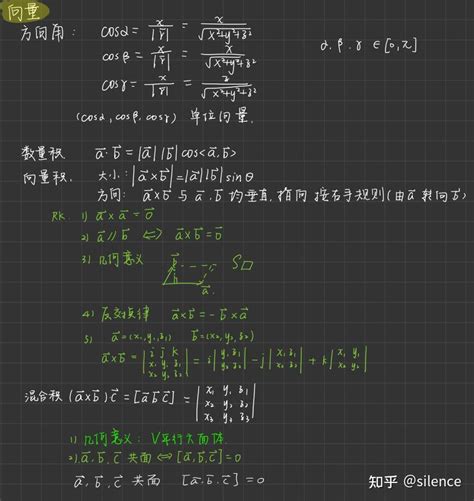 向量
方向角: cosα = x/|r⃗| = x/√(x²+y²+z²)
α, β, γ ∈ [0, π]
cosβ = x/|r⃗| = x/√(x²+y²+z²)
cosγ = x/|r⃗| = z/√(x²+y²+z²)
(cosα, cosβ, cosγ) 单位向量.
数量积 a⃗·b⃗ = |a⃗||b⃗| cos<a⃗,b⃗>
向量积. 大小: |a⃗×b⃗| = |a⃗||b⃗| sinθ
方向: a⃗×b⃗ 与 a⃗, b⃗ 均垂直, 指向按右手规则 (由a⃗转向b⃗)
RK. 1) a⃗×a⃗ = 0⃗
2) a⃗∥b⃗ ⇔ a⃗×b⃗ = 0⃗
3) 几何意义 b⃗ h a⃗ S▱
4) 反交换律 a⃗×b⃗ = -b⃗×a⃗
5) a⃗=(x₁,y₁,z₁) b⃗=(x₂,y₂,z₂)
a⃗×b⃗ = |i j k; x₁ y₁ z₁; x₂ y₂ z₂| = i|y₁ z₁; y₂ z₂| - j|x₁ z₁; x₂ z₂| + k|x₁ y₁; x₂ y₂|
混合积 (a⃗×b⃗)·c⃗ = [a⃗ b⃗ c⃗] = |x₁ y₁ z₁; x₂ y₂ z₂; x₃ y₃ z₃|
1) 几何意义: V平行六面体.
2) a⃗, b⃗, c⃗ 共面 ⇔ [a⃗, b⃗, c⃗] = 0
a⃗, b⃗, c⃗ 共面 [a⃗, b⃗, c⃗] = 0
知乎 @silence